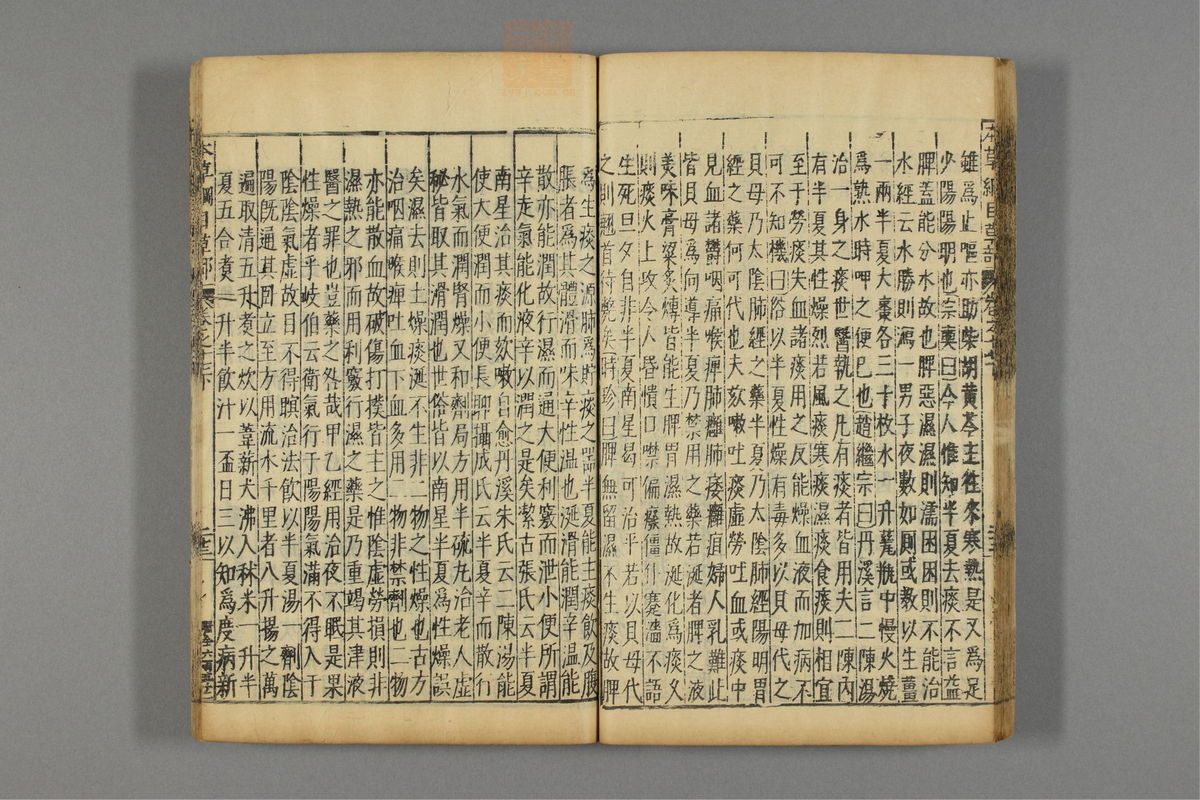 雖爲止嘔亦助柴胡黄芩主徃來寒熱是又爲足
少陽陽明也宗奭曰今人惟知半夏去痰不言益
脾蓋能分水故也脾惡濕濕則濡困困則不能治
水經云水勝則瀉一男子夜數如厠或教以生薑
一兩半夏大棗各三十枚水一升甆瓶中慢火燒
爲熱水時呷之便已也趙繼宗曰丹溪言二陳湯
治一身之痰世醫執之凡有痰者皆用夫二陳内
有半夏其性燥烈若風痰寒痰濕痰食痰則相宜
至于勞痰失血諸痰用之反能燥血液而加病不
可不知機曰俗以半夏性燥有毒多以貝母代之
貝母乃太陰肺經之藥半夏乃太陰脾經陽明胃
經之藥何可代也夫欬嗽吐痰虛勞吐血或痰中
見血諸鬱咽痛喉痺肺癰肺痿癰疽婦人乳難此
皆貝母爲向導半夏乃禁用之藥若涎者脾之液
美味膏粱炙煿皆能生脾胃濕熱故涎化爲痰久
則痰火上攻令人昏憒口噤偏癈僵仆蹇澁不語
生死旦夕自非半夏南星曷可治乎若以貝母代
之則翹首待斃矣時珍曰脾無留濕不生痰故脾
爲生痰之源肺爲貯痰之器半夏能主痰飲及腹
脹者爲其體滑而味辛性温也涎滑能潤辛温能
散亦能潤故行濕而通大便利竅而泄小便所謂
辛走氣能化液辛以潤之是矣絜古張氏云半夏
南星治其痰而欬嗽自愈丹溪朱氏云二陳湯能
使大便潤而小便長聊攝成氏云半夏辛而散行
水氣而潤腎燥又和劑局方用半硫丸治老人虛
秘皆取其滑潤也世俗皆以南星半夏爲性燥誤
矣濕去則土燥痰涎不生非二物之性燥也古方
治咽痛喉痺吐血下血多用二物非禁劑也二物
亦能散血故破傷打撲皆主之惟陰虛勞損則非
濕熱之邪而用利竅行濕之藥是乃重竭其津液
醫之罪也豈藥之咎哉甲乙經用治夜不眠是果
性燥者乎岐伯云衛氣行于陽陽氣滿不得入于
陰陰氣虛故目不得瞑治法飲以半夏湯一劑陰
陽旣通其卧立至方用流水千里者八升揚之萬
遍取取清五升煮之炊以葦薪火沸入秫米一升半
夏五合煮一升半飲汁一盃日三以知爲度病新
本草綱目草部